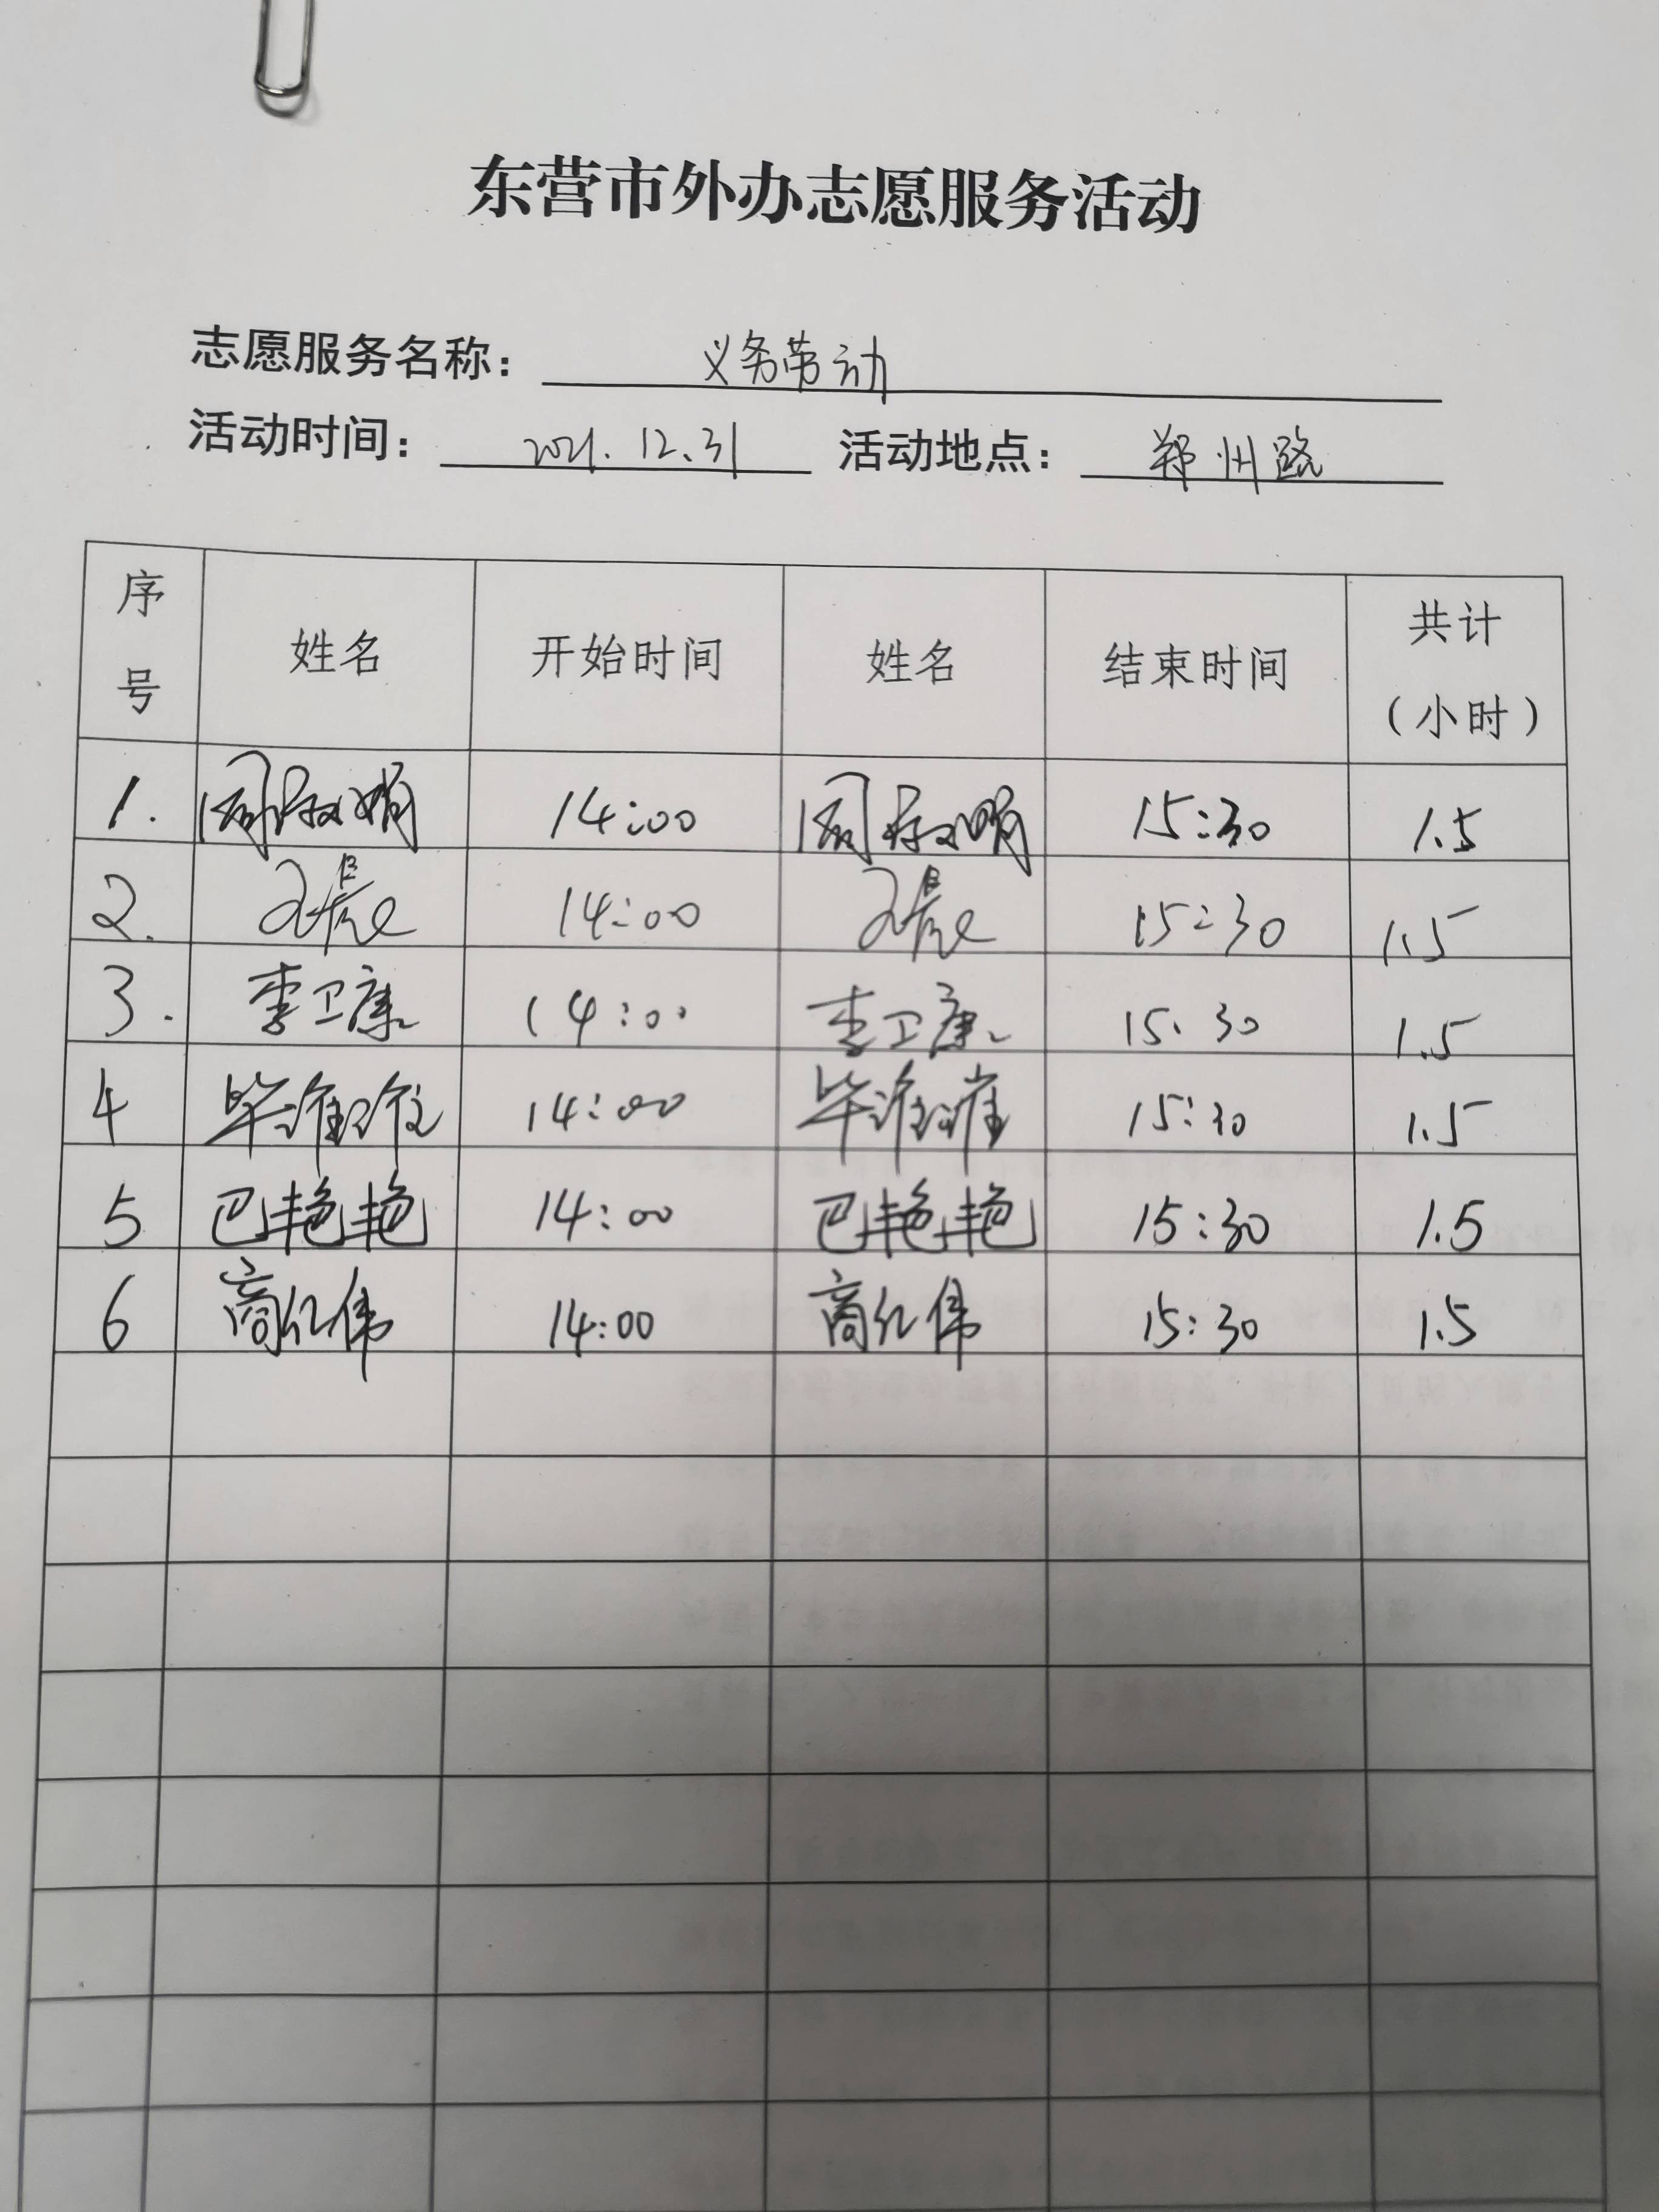 东营市外办志愿服务活动
志愿服务名称： 义务劳动
活动时间： 2021.12.31 活动地点： 郑州路
序号 姓名 开始时间 姓名 结束时间 共计（小时）
1. 周 14:00 周 15:30 1.5
2. 14:00 15:30 1.5
3. 李卫康 14:00 李卫康 15:30 1.5
4 毕 14:00 毕 15:30 1.5
5 巴艳艳 14:00 巴艳艳 15:30 1.5
6 商红伟 14:00 商红伟 15:30 1.5